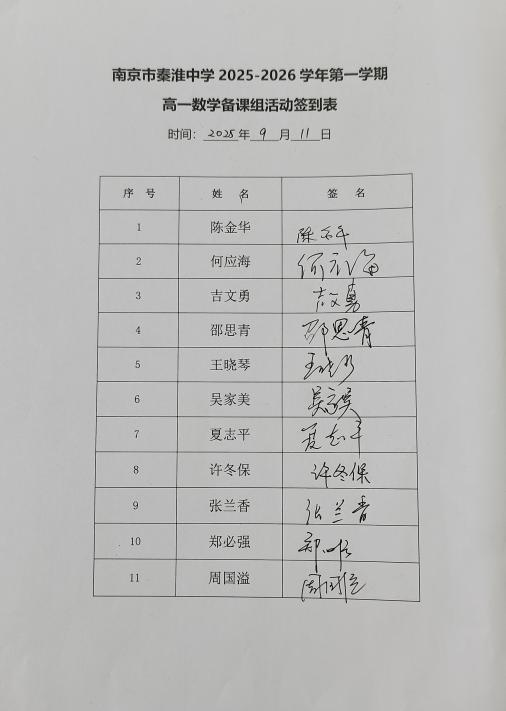 南京市秦淮中学2025-2026学年第一学期
高一数学备课组活动签到表
时间：2025年9月11日
序号 姓名 签名
1 陈金华
2 何应海 何应海
3 吉文勇 吉文勇
4 邵思青 邵思青
5 王晓琴 王晓琴
6 吴家美
7 夏志平 夏志平
8 许冬保 许冬保
9 张兰香 张兰香
10 郑必强
11 周国溢 周国溢